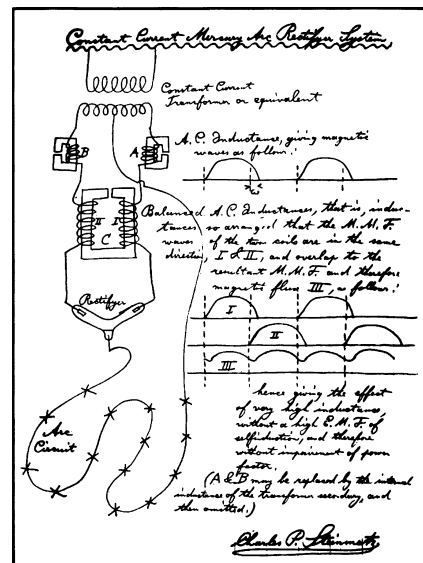 Constant Current Mercury Arc Rectifyer System
Constant Current
Transformer or equivalent
B
A
A.C. Inductance, giving magnetic
waves as follow:
Balanced A.C. Inductances, that is, induc-
tances so arranged that the M.M.F.
waves of the two coils are in the same
direction, I & II, and overlap to the
resultant M.M.F. and therefore
magnetic flux III, as follow:
II
I
C
Rectifyer
I
II
III
hence giving the effect
of very high inductance,
without a high E.M.F. of
selfinduction, and therefore
without impairment of power
factor.
Arc
Circuit
(A & B may be replaced by the internal
inductance of the transformer secondary, and
then omitted.)
Charles P. Steinmetz